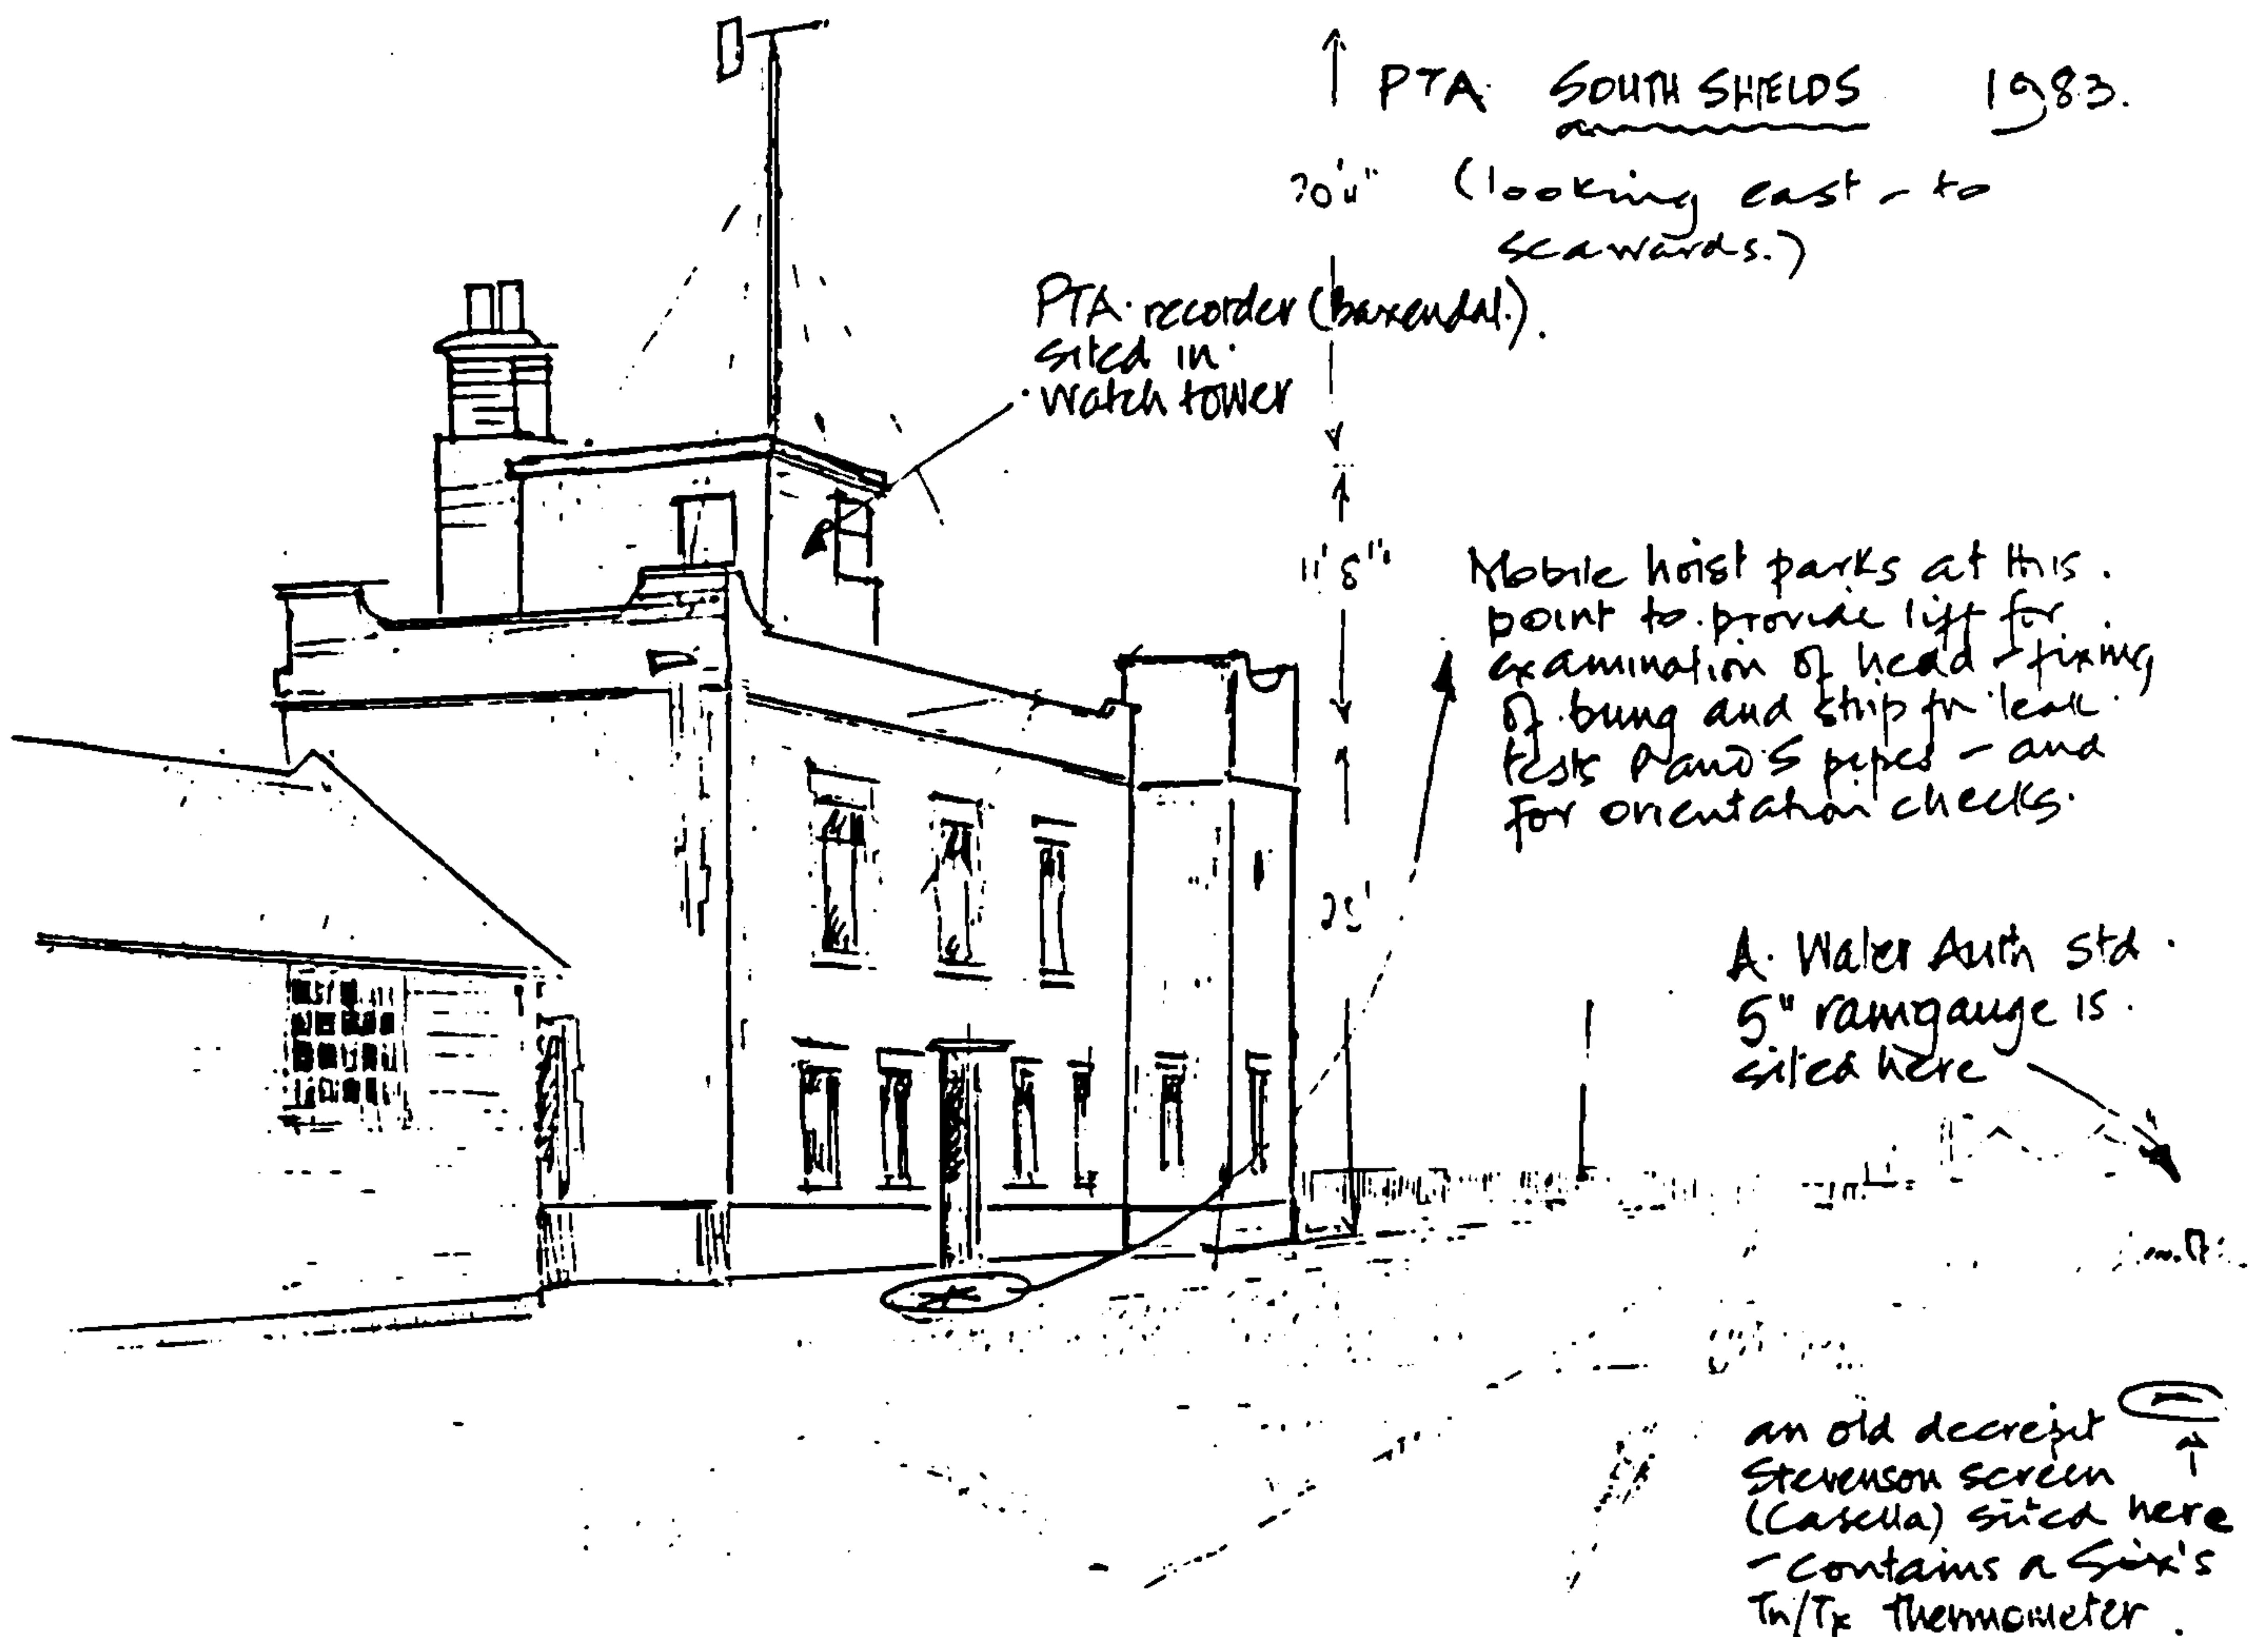 PTA SOUTH SHIELDS 1983.
(looking east - to
seawards.)
PTA. recorder (baxendal.).
sited in.
watch tower
11' 8"
Mobile hoist parks at this.
point to provide lift for
examination of head - fixing
of bung and strip for leak
tests P and S pipes - and
for orientation checks.
25'
A. Water Auth Std.
5" raingauge is.
sited here
an old decrepit
Stevenson screen
(Casella) sited here
- contains a Six's
Tn/Tx thermometer.